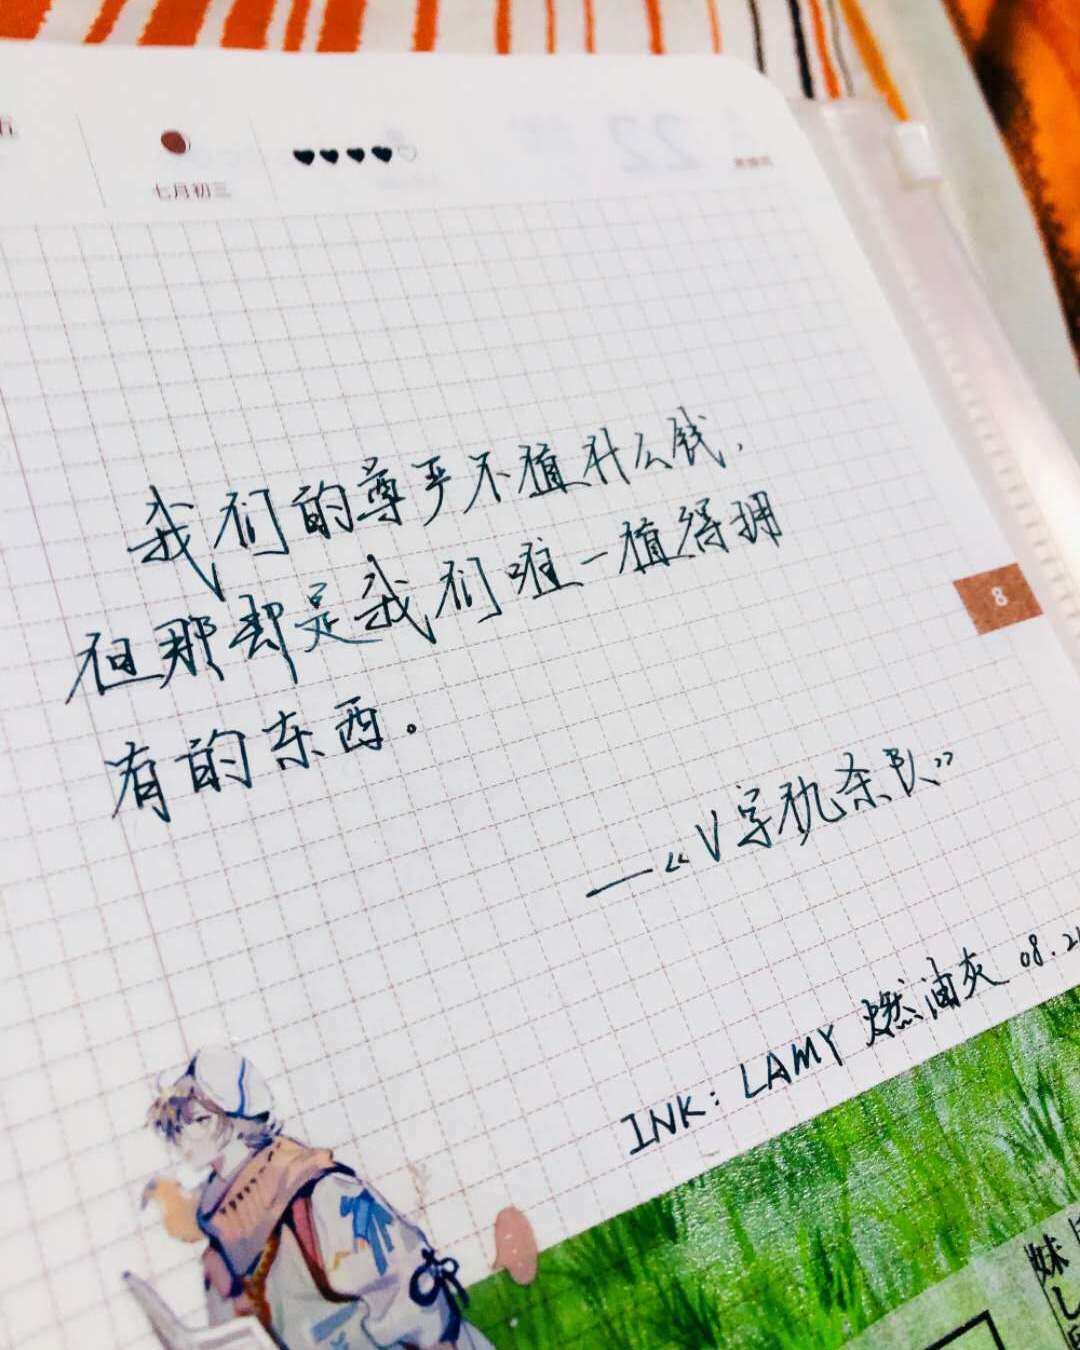 七月初三
22
我们的尊严不值什么钱,
但那却是我们唯一值得拥
有的东西。
8
—《V字仇杀队》
INK: LAMY 燃油灰 08.21
妹